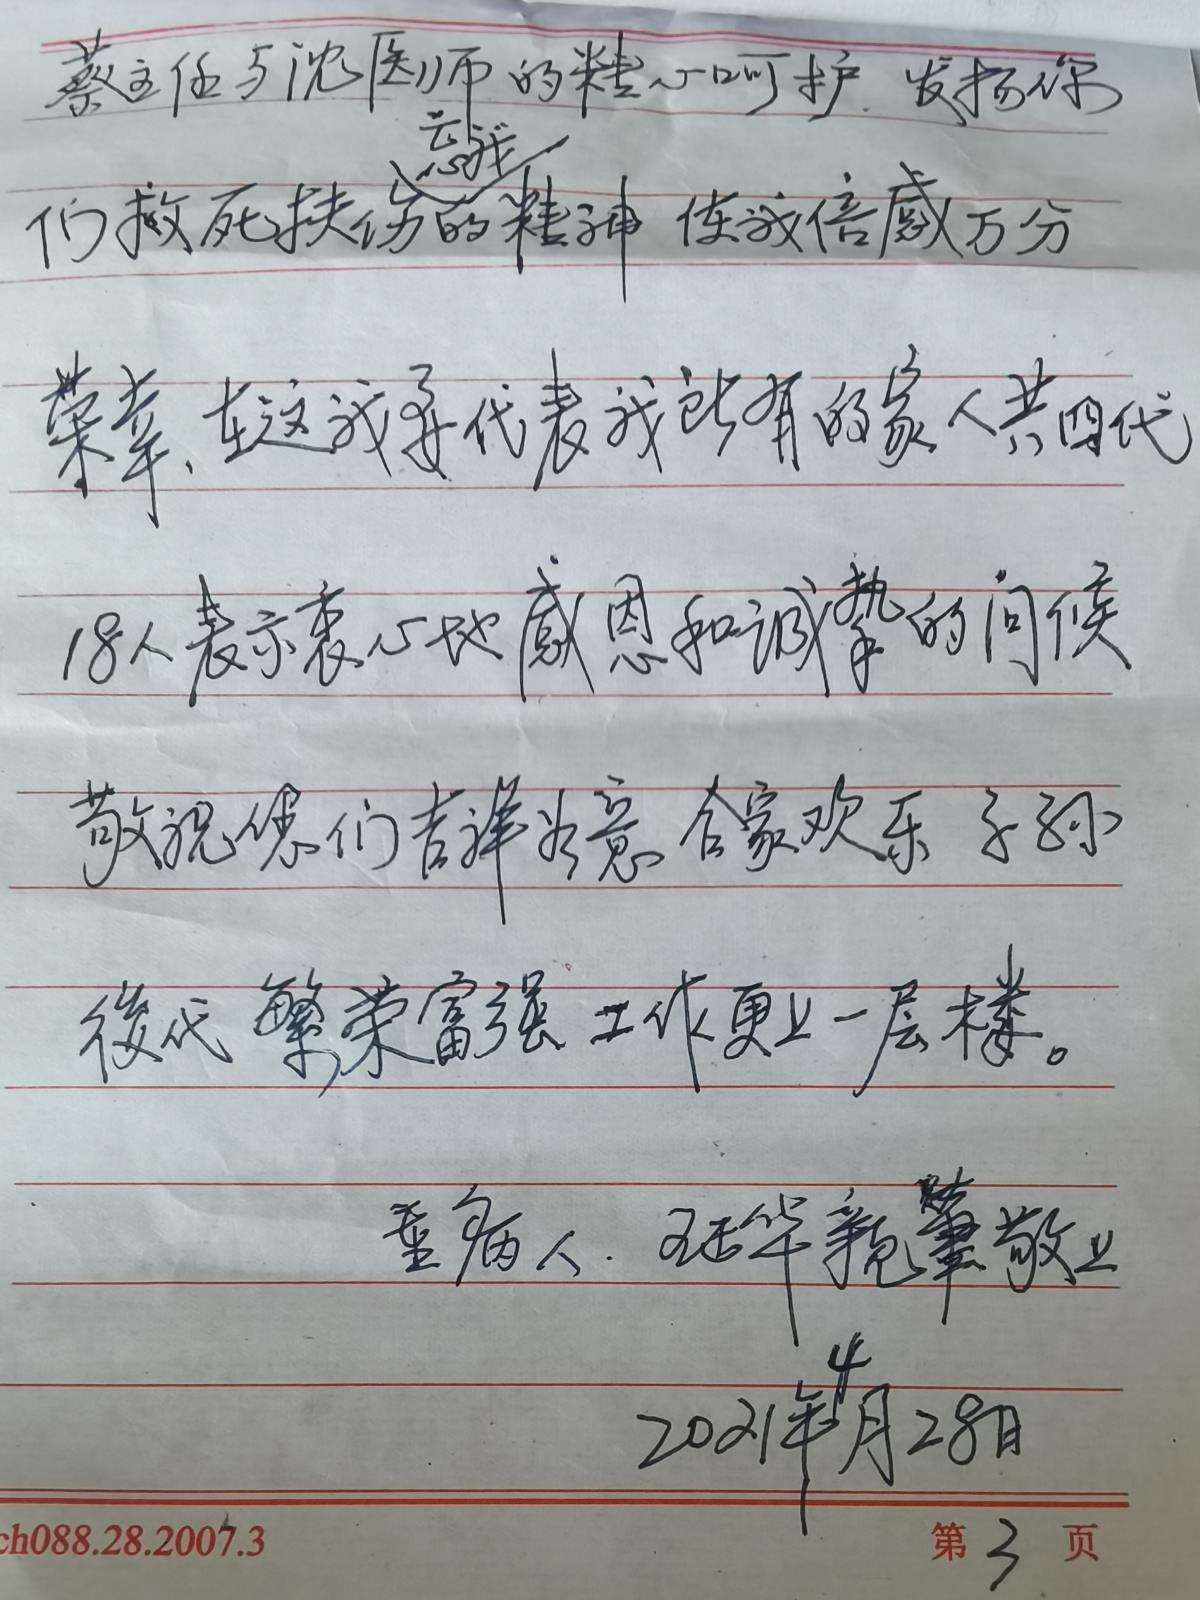 蔡主任与沈医师的精心呵护.发扬你
们救死扶伤忘我的精神 使我倍感万分
荣幸、在这我要代表我所有的家人共四代
18人表示衷心地感恩和诚挚的问候
敬祝您们吉祥如意 合家欢乐 子孙
後代 繁荣富强 工作更上一层楼。
重病人. 华亲笔敬上
2021年4月28日
ch088.28.2007.3
第3页